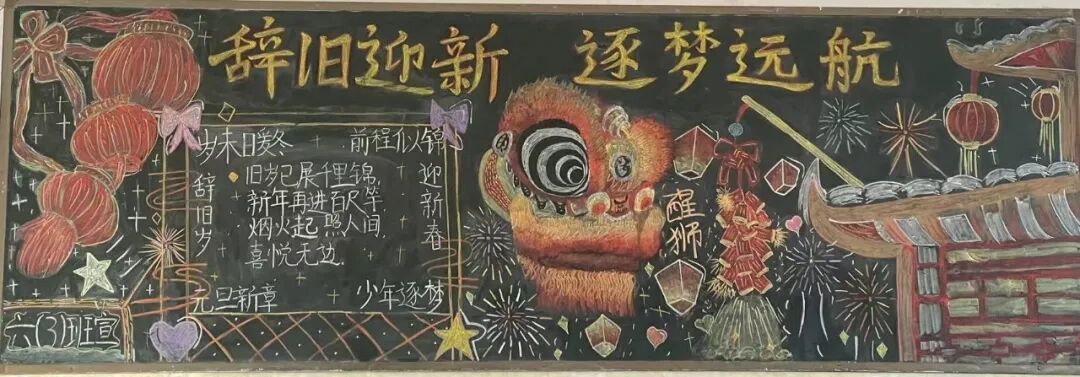 辞旧迎新 逐梦远航
岁末日暖冬 前程似锦
辞旧岁
旧岁已展千里锦
新年再进百尺竿
烟火起照人间
喜悦无边
迎新春
元旦新章 少年逐梦
醒狮
六(3)班宣